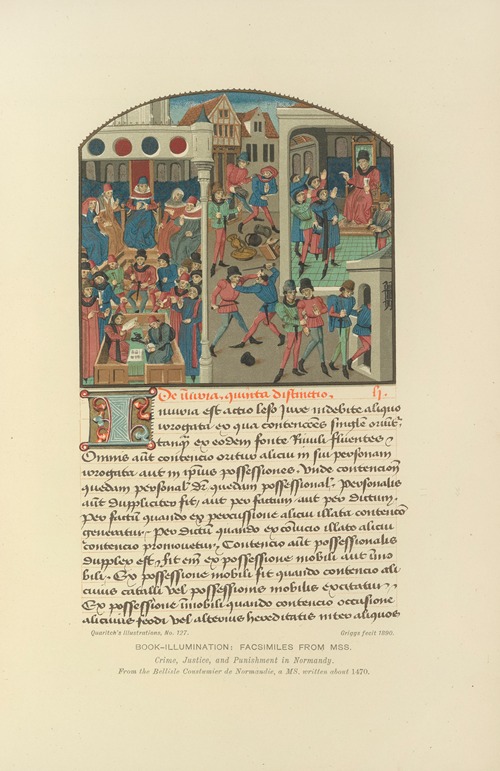 De iniuria . quinta distinctio . lj.
Iniuria est actio leso Iure indebite aliquo
irrogata ex qua contenciones singule oriunt̄
tanqᷓ ex eodem fonte Riuuli fluentes
Omnis aut̄ contencio oritur alicui in sui personam
irrogata aut in ip̄ius possessiones . Unde contencionū
quedam personal' dr̄ quedam possessional' . Personalis
aut̄ duppliciter fit , aut per factum , aut per dictum .
Per factū quando ex percussione alicui illata contencō
generatur . Per dictū quando ex conuicio illato alicui
contencio promouetur . Contencio aut̄ possessionalis
dupplex est , fit enī ex possessione mobili aut īmo
bili . Ex possessione mobili fit quando contencio ali
cuius catalli vel possessionis mobilis excitatur .
Ex possessione īmobili quando contencio occasione
alicuius feodi vel alterius hereditatis inter aliquos
Quaritch's Illustrations, No. 127. Griggs fecit 1890.
BOOK-ILLUMINATION: FACSIMILES FROM MSS.
Crime, Justice, and Punishment in Normandy.
From the Bellisle Coustumier de Normandie, a MS. written about 1470.